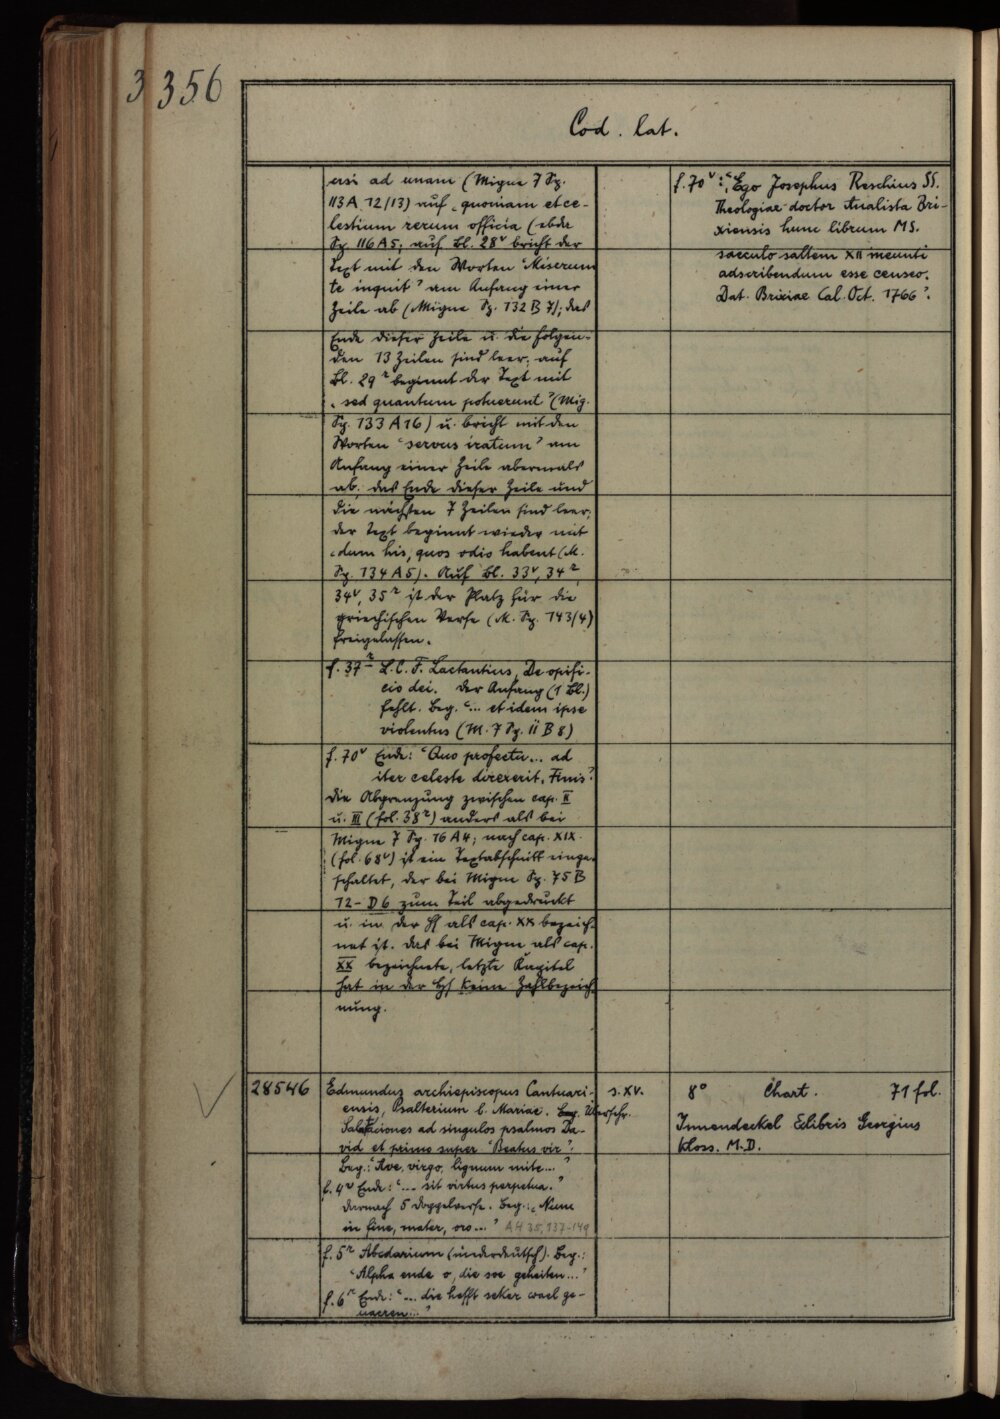 3 356
Cod. lat.
ersi ad unam (Migne 7 Sp.
113 A 12/13) auf „quoniam et ce-
lestium rerum officia (ebda
Sp. 116 A 5; auf Bl. 28v bricht der
Text mit den Worten "Miserum
te inquit" am Anfang einer
Zeile ab (Migne Sp. 132 B 7); das
Ende dieser Zeile u. die folgen-
den 13 Zeilen sind leer; auf
Bl. 29r beginnt der Text mit
„sed quantum potuerunt" (Mig.
Sp. 133 A 16) u. bricht mit den
Worten "servus iratum" am
Anfang einer Zeile abermals
ab; das Ende dieser Zeile und
die nächsten 7 Zeilen sind leer;
der Text beginnt wieder mit
„dum his, quos odio habent (M.
Sp. 134 A 5). Auf Bl. 33v, 34r,
34v, 35r ist der Platz für die
griechischen Verse (M. Sp. 143/4)
freigelassen.
f. 37r L. C. F. Lactantius, De opifi-
cio dei. Der Anfang (1 Bl.)
fehlt. Beg. "... et idem ipse
violentus (M. 7 Sp. 11 B 8)
f. 70v Ende: "Quo profectu... ad
iter celeste direxerit. Finis".
Die Abgrenzung zwischen cap. II
u. III (fol. 38r) anders als bei
Migne 7 Sp. 16 A 4; nach cap. XIX
(fol. 68v) ist ein Textabschnitt einge-
schaltet, der bei Migne Sp. 75 B
12 - D 6 zum Teil abgedruckt
u. in der Hs als cap. XX bezeich-
net ist. Das bei Migne als cap.
XX bezeichnete, letzte Kapitel
hat in der Hs keine Zahlbezeich-
nung.
f. 70v: "Ego Josephus Reschius SS.
Theologiae doctor Analista Bri-
xiensis hunc librum MS.
saeculo saltem XII ineunti
adscribendum esse censeo.
Dat. Brixiae Cal. Oct. 1766".
28546
Edmundus archiepiscopus Cantuari-
ensis, Psalterium b. Mariae. Beg. Überschr.
Salutaciones ad singulos psalmos Da-
vid et primo super "Beatus vir".
Beg.: "Ave, virgo, lignum mite..."
f. 4v Ende: "... sit virtus perpetua."
darnach 5 Doppelverse. Beg.: „Nunc
in fine, mater, oro..." AH 35, 137-149
f. 5r Abcdarium (niederdeutsch). Beg.:
"Alpha ende o, die soe geheiten..."
f. 6r Ende: "... die hefft seker wael ge-
s. XV.
8° Chart. 71 fol.
Innendeckel Exlibris Georgius
Kloss. M. D.